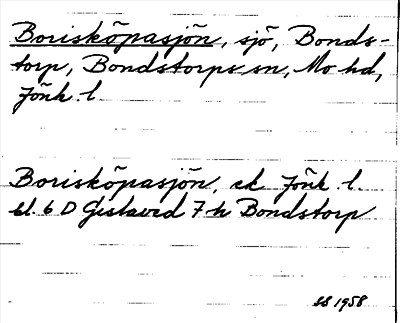 Borisköpasjön, sjö, Bonds-
torp, Bondstorps sn, Mo hd,
Jönk. l.
Borisköpasjön, ek Jönk l.
bl. 6 D Gislaved 7 h Bondstorp
1958